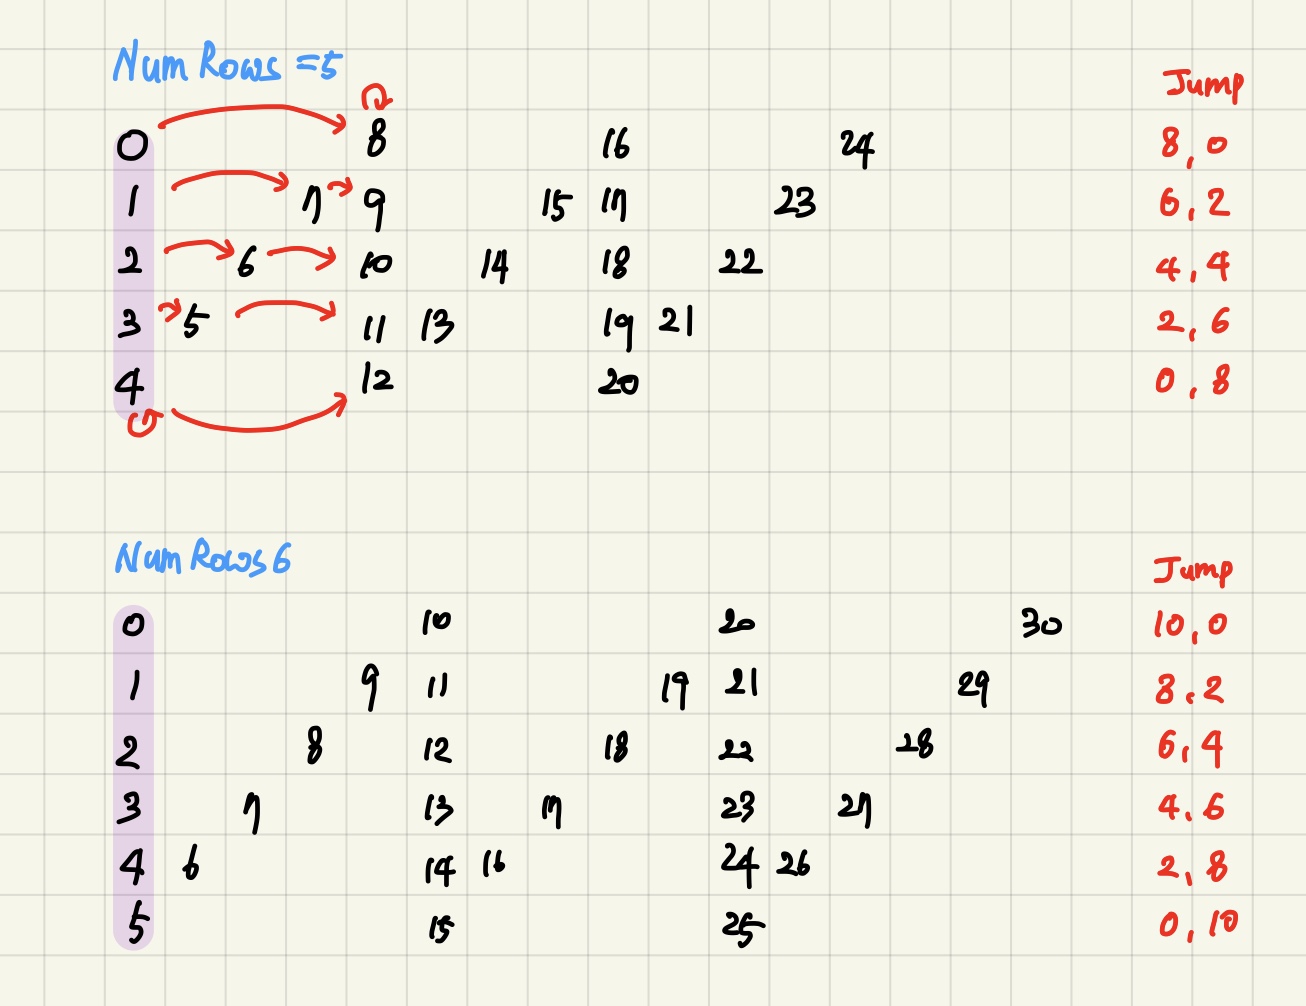 Num Rows = 5
Jump
0 8 16 24 8,0
1 7 9 15 17 23 6,2
2 6 10 14 18 22 4,4
3 5 11 13 19 21 2,6
4 12 20 0,8
Num Rows 6
Jump
0 10 20 30 10,0
1 9 11 19 21 29 8,2
2 8 12 18 22 28 6,4
3 7 13 17 23 27 4,6
4 6 14 16 24 26 2,8
5 15 25 0,10